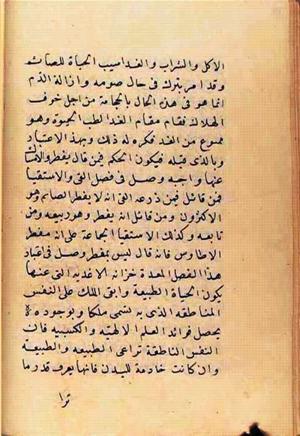 الاكل والشراب والغذا سبب الحياة للصائم
وقد امر بترك في حال صومه وازالة الدم
انما هو في هذه الحال بالحجامة من اجل خوف
الهلاك فقام مقام الغذا لطلب الحيوة وهو
ممنوع من الغذ فكره له ذلك وبهذا الاعتبار
وبالذي قبله فيكون الحكم فمن قال يفطر والامساك
عنها واجبه وصل في فصل القي والاستقيا
فمن قائل فيمن ذرعه القي انه لا يفطر الصائم وهم
الاكثرون ومن قائل انه يفطر وهو ربيعه ومن
تابعه وكذلك الاستقيا الجماعة على انه مفطر
الا طاوس فانه قال ليس بمفطر وصل في اعتبار
هذا الفصل المعدة خزانة الاغديه التي عنها
يكون الحياة الطبيعة وابقى الملك على النفس
الناطقه الذي به تسمى ملكا وبوجوده
يحصل فوائد العلم الالاهيه والكسبيه فان
النفس الناطقة تراعى الطبيعه والطبيعه
وان كانت خادمة للبدن فانها يعرف قدر ما
ترا